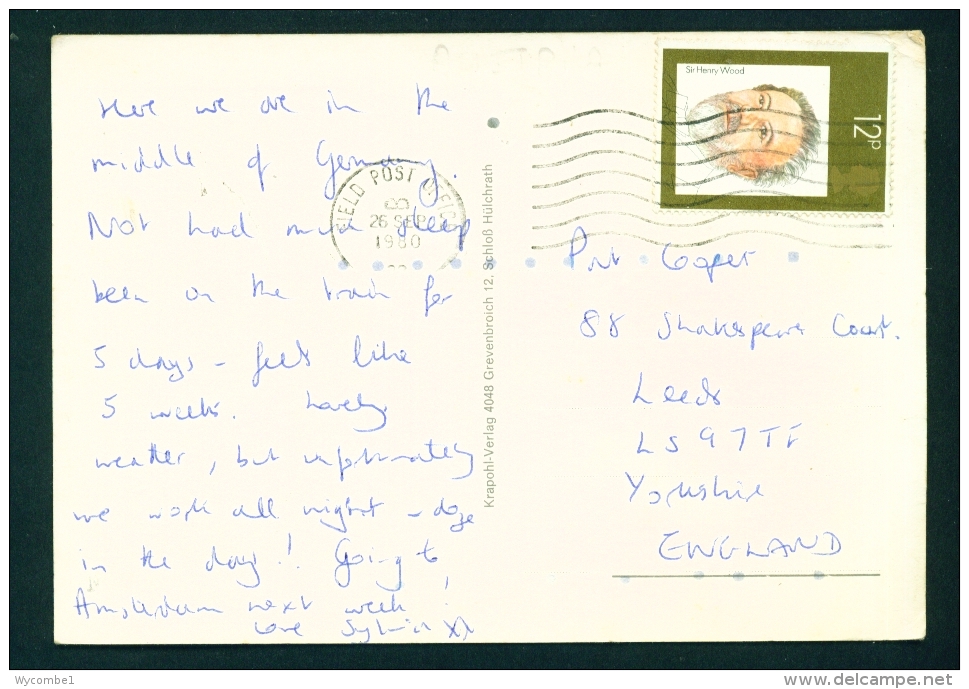 Here we are in the
middle of Germany.
Not had much sleep
been on the train for
5 days - feels like
5 weeks. Lovely
weather, but unfortunately
we work all night - doze
in the day! Going to
Amsterdam next week!
Love Sylvia XX
Sir Henry Wood
12p
FIELD POST OFFICE
26 SEP
1980
Krapohl-Verlag 4048 Grevenbroich 12. Schloß Hülchrath
Cooper
88 Shakespeare Court.
Leeds
LS9 7TF
Yorkshire
ENGLAND
Wycombe1
www.delcampe.net